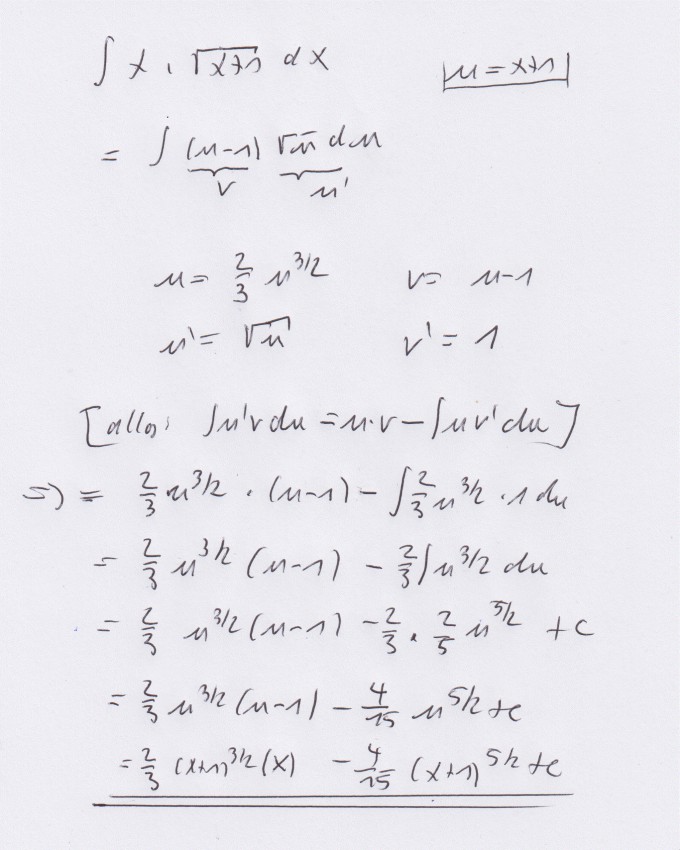 ∫ x · √(x+1) dx |u = x+1|
= ∫ (u-1) √u du
v u'
u = 2/3 u^3/2 v = u-1
u' = √u v' = 1
[allg: ∫u'v du = u·v - ∫uv' du]
=> = 2/3 u^3/2 · (u-1) - ∫ 2/3 u^3/2 · 1 du
= 2/3 u^3/2 (u-1) - 2/3 ∫ u^3/2 du
= 2/3 u^3/2 (u-1) - 2/3 · 2/5 u^5/2 + c
= 2/3 u^3/2 (u-1) - 4/15 u^5/2 + c
= 2/3 (x+1)^3/2 (x) - 4/15 (x+1)^5/2 + c